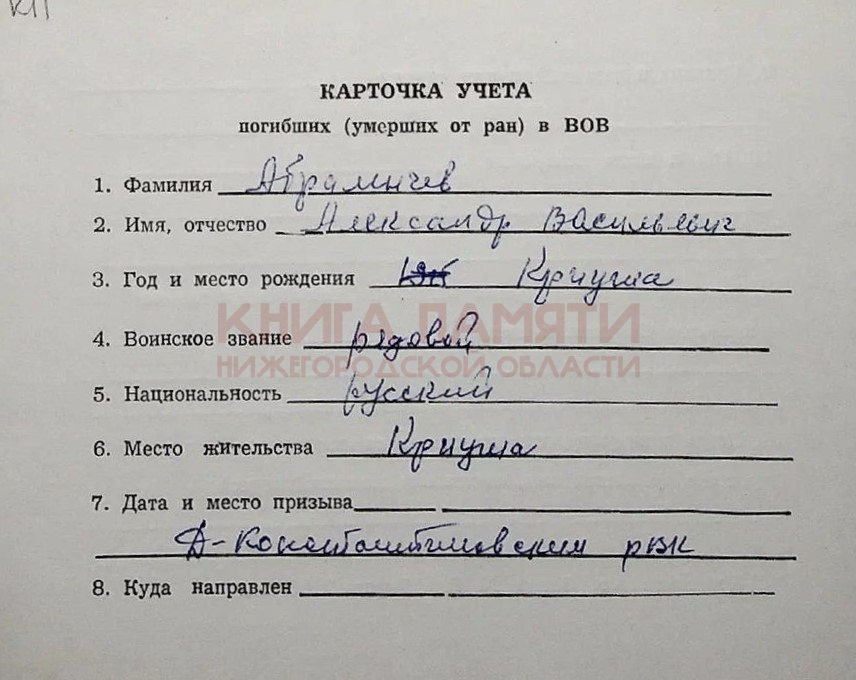 КП
КАРТОЧКА УЧЕТА
погибших (умерших от ран) в ВОВ
1. Фамилия Абрамычев
2. Имя, отчество Александр Васильевич
3. Год и место рождения Криуша
4. Воинское звание рядовой
5. Национальность русский
6. Место жительства Криуша
7. Дата и место призыва
Д-Константиновским рвк
8. Куда направлен
КНИГА ПАМЯТИ
НИЖЕГОРОДСКОЙ ОБЛАСТИ